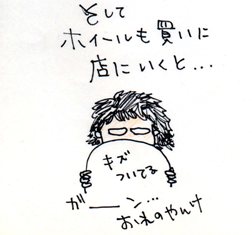 そして
ホイールも買いに
店にいくと…
キズ
ついてる
ガーーン…
おれのやんけ